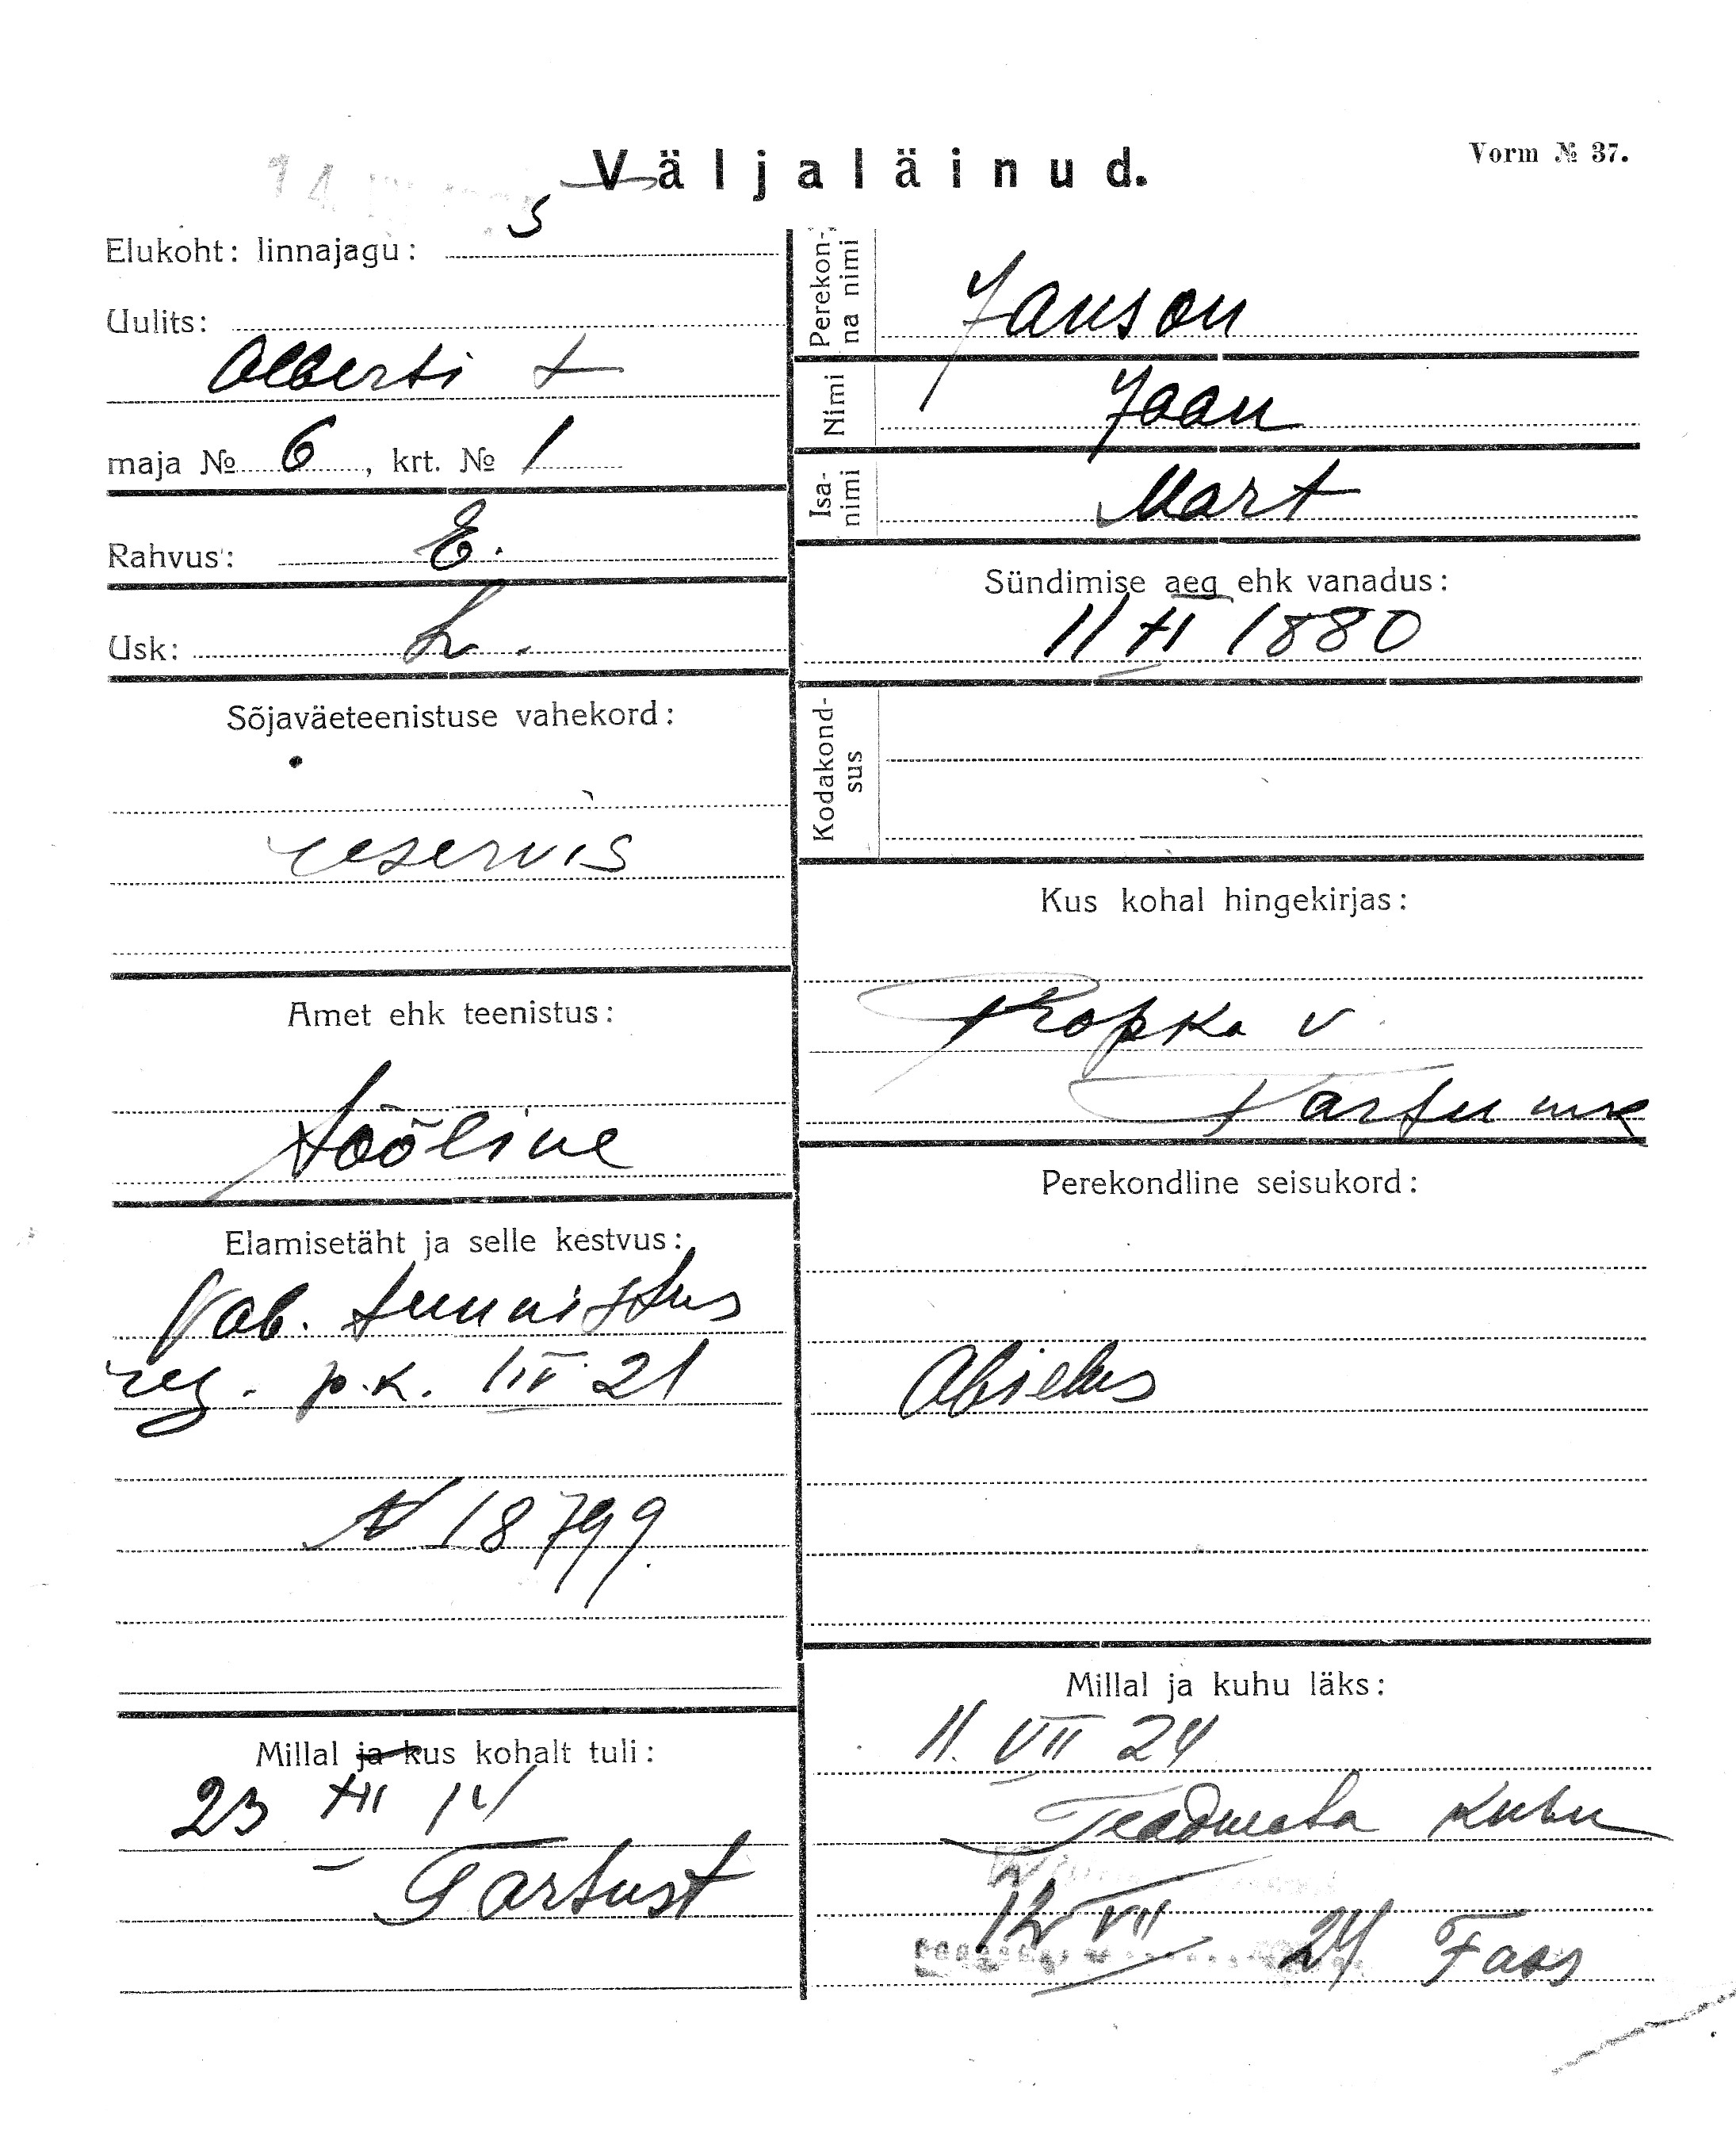 Väljaläinud.
Vorm № 37.
Elukoht: linnajagu: 5
Uulits:
Alberti t
maja № 6, krt. № 1
Rahvus: E.
Usk: L.
Sõjaväeteenistuse vahekord:
reservis
Amet ehk teenistus:
tööline
Elamisetäht ja selle kestvus:
Vab. tunnistus
reg. p.k. 1 IV 21
N 18799.
Millal ja kus kohalt tuli:
23 XII 14
Tartust
Perekon-
na nimi
Janson
Nimi
Jaan
Isa-
nimi
Mart
Sündimise aeg ehk vanadus:
11/XI 1880
Kodakond-
sus
Kus kohal hingekirjas:
Ropka v.
Tartu mk
Perekondline seisukord:
Abielus
Millal ja kuhu läks:
11. VII 24
Teadmata kuhu
12 VII 24